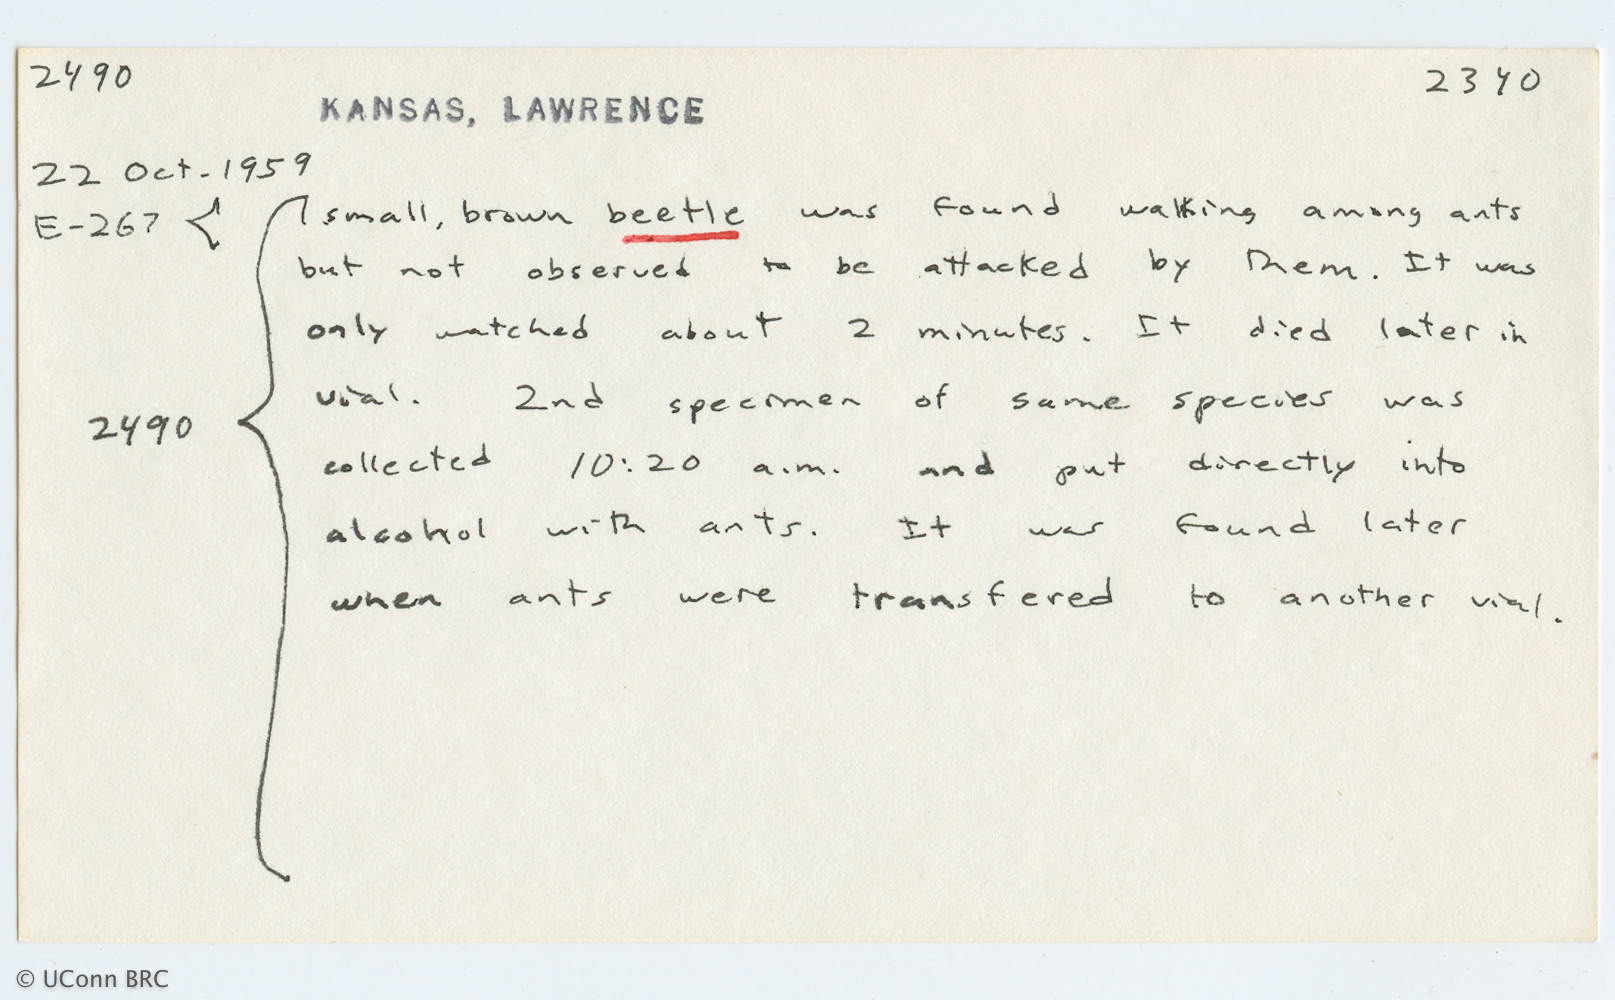 2490
2340
KANSAS, LAWRENCE
22 Oct. 1959
E-267
1 small, brown beetle was found walking among ants
but not observed to be attacked by them. It was
only watched about 2 minutes. It died later in
vial. 2nd specimen of same species was
2490
collected 10:20 a.m. and put directly into
alcohol with ants. It was found later
when ants were transfered to another vial.
© UConn BRC